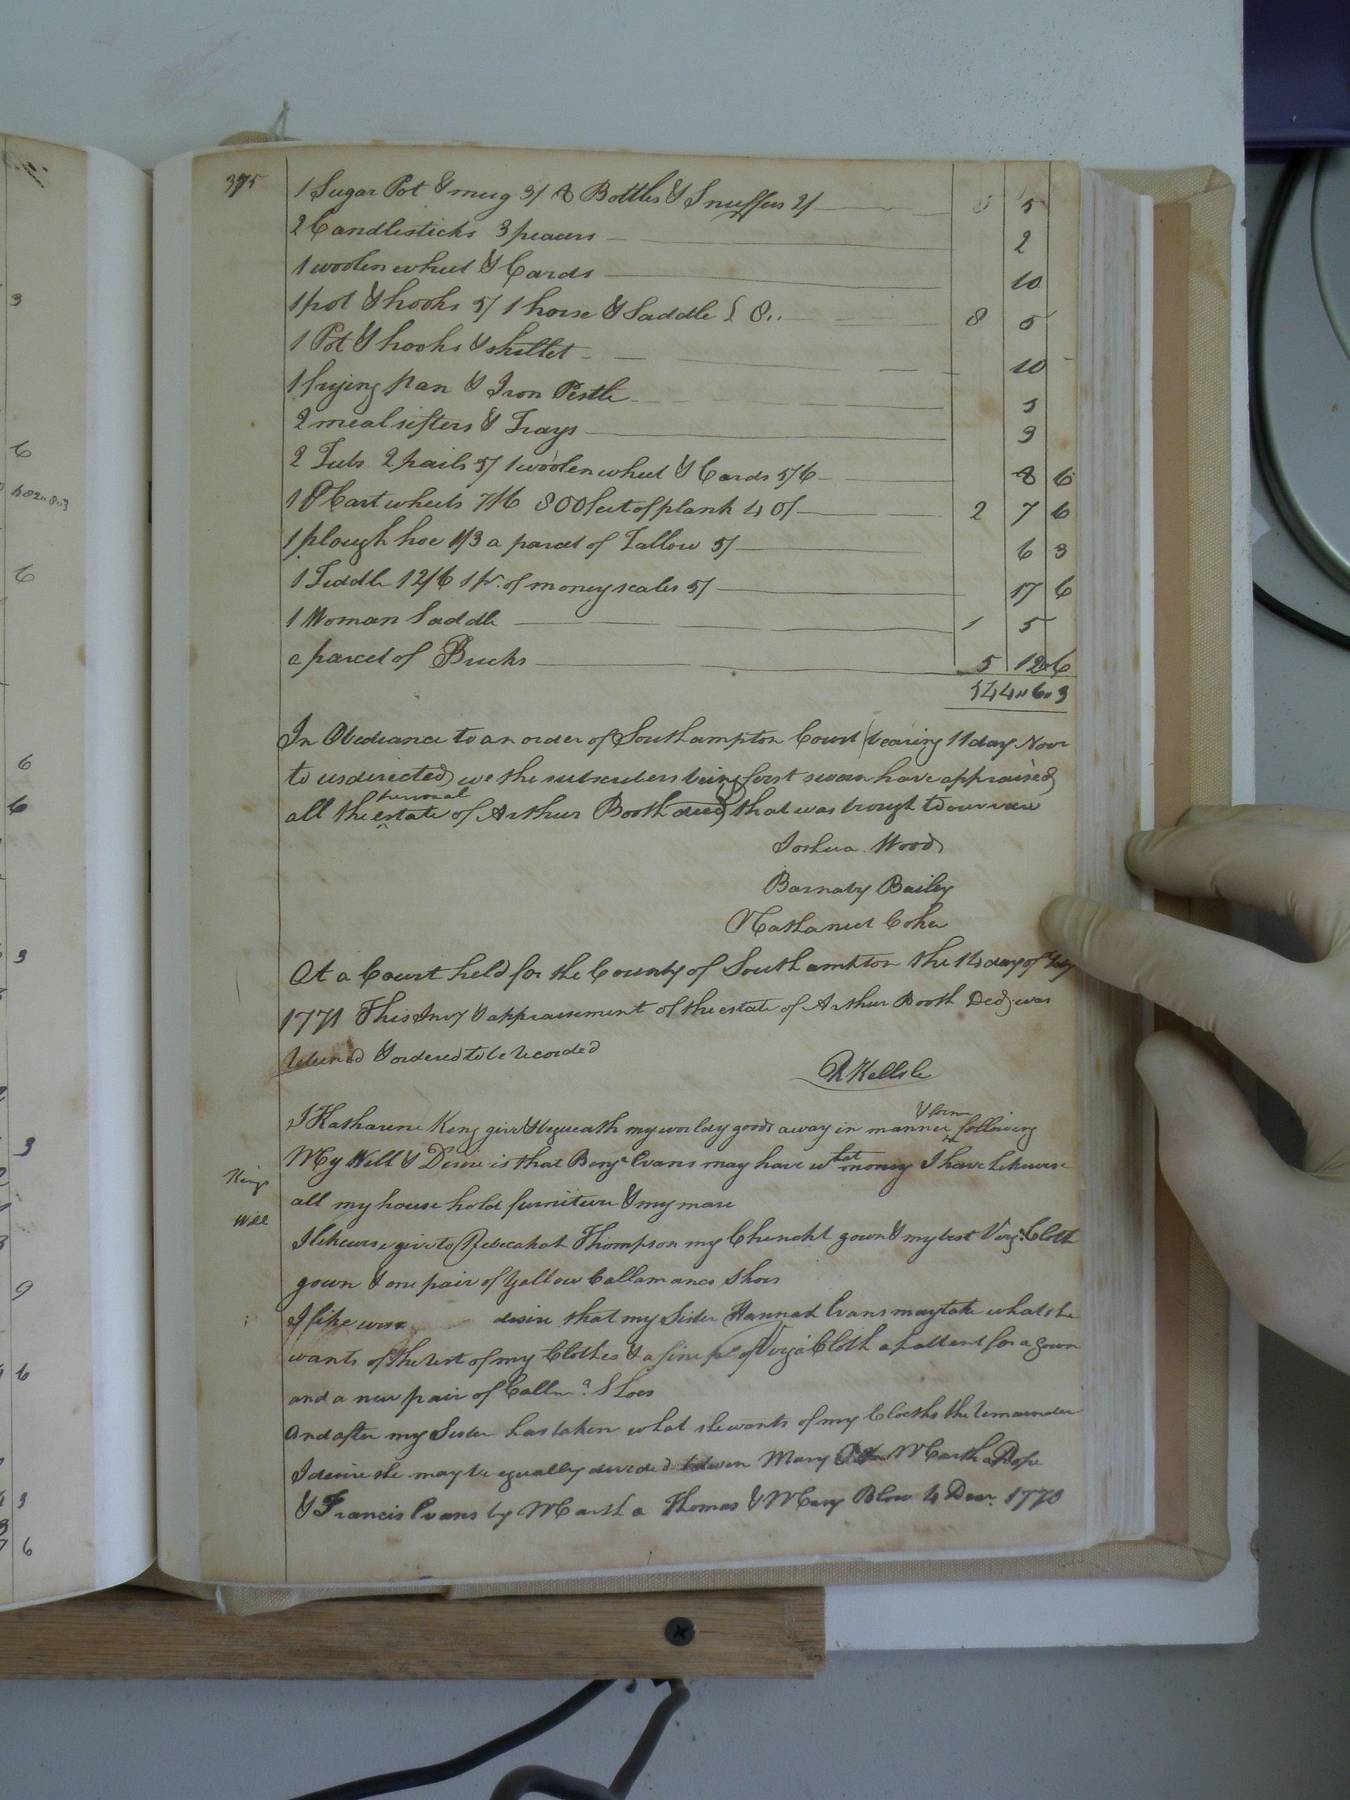 375
1 Sugar Pot & mug 3/ 8 Bottles & Snuffers 2/ 5
2 Candlesticks 3 peacers 2
1 woolen wheel & Cards 10
1 pot & hooks 5/ 1 horse & Saddle £ 8.. 8 5
1 Pot & hooks & skillet 10
1 frying pan & Iron Pestle 5
2 meal sifters & Trays 3
2 Tubs 2 pails 5/ 1 woolen wheel & Cards 5/6 8 6
1 P Cart wheels 7/6 800 feet of plank 40/ 2 7 6
1 plough hoe 1/3 a parcel of Tallow 5/ 6 3
1 Fiddle 12/6 1 pr. of money scales 5/ 17 6
1 Woman Saddle 1 5
a parcel of Bucks 5 12 6
544 " 6 " 3
In Obediance to an order of Southampton Court bearing 11 day Novr
to us directed we the subscribers being first sworn have appraised
all the personal estate of Arthur Booth deced that was brought to our view
Joshua Wood
Barnaby Bailey
Nathaniel Coker
At a Court held for the County of Southampton the 14 day of
1771 This Invy & appraisement of the estate of Arthur Booth Decd was
Returned & ordered to be recorded
R Kello
I Katharine King give & bequeath my worldy goods away in manner & form following
Kings
Will
My Will & Desire is that Benja Evans may have what money I have Likewise
all my house hold furniture & my mare
I likewise give to Rebecakah Thompson my Cheneht gown & my best Virga. Cloth
gown & one pair of yallow Callamanco Shoes
I like wise desire that my Sister Hannah Evans may take what she
wants of the rest of my Clothes & a fine ps of Virga Cloth a pattent for a gown
and a new pair of Callma. Shoes
And after my Sister has taken what she wants of my Cloeths the remainder
I desire she may be equally devided between Mary Martha Pope
& Francis Evans by Martha Thomas & Mary Blow 4 Decr. 1770